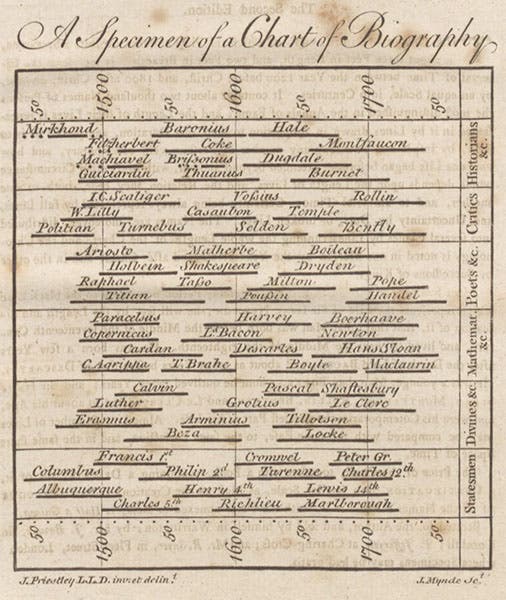 A Specimen of a Chart of Biography
50 1500 50 1600 50 1700 50
Mirkhond Baronius Hale
Fitzherbert Coke Montfaucon
Machiavel Brissonius Dugdale
Guicciardin Thuanus Burnet
Historians &c.
I.C. Scaliger Vossius Rollin
W. Lilly Casaubon Temple
Politian Turnebus Selden Bently
Critics &c.
Ariosto Malherbe Boileau
Holbein Shakespeare Dryden
Raphael Tasso Milton Pope
Titian Poussin Handel
Poets &c.
Paracelsus Harvey Boerhaave
Copernicus Ld. Bacon Newton
Cardan Descartes Hans Sloan
C. Agrippa T. Brahe Boyle Maclaurin
Mathemat. &c.
Calvin Pascal Shaftesbury
Luther Grotius Le Clerc
Erasmus Arminius Tillotson
Beza Locke
Divines &c
Francis 1st. Cromwel Peter Gr.
Columbus Philip 2d. Turenne Charles 12th
Albuquerque Henry 4th Lewis 14th
Charles 5th Richlieu Marlborough
Statesmen
50 1500 50 1600 50 1700 50
J. Priestley L.L.D. inv. et delint. J. Mynde sct.